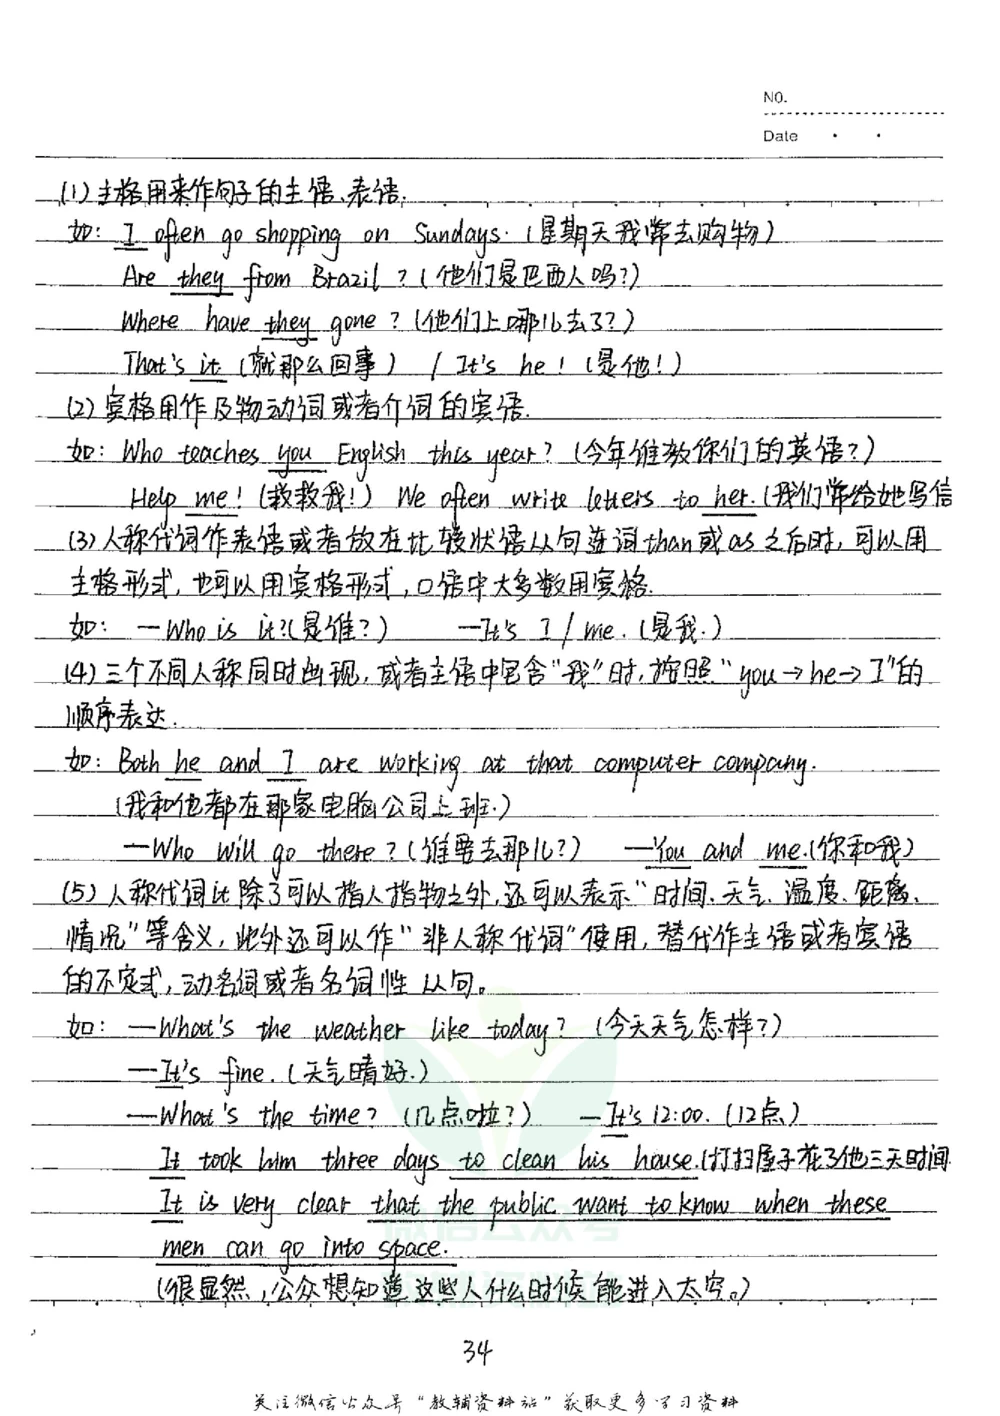 NO.
Date
(1)主格用来作句子的主语、表语.
如: I often go shopping on Sundays.(星期天我常去购物)
Are they from Brazil?(他们是巴西人吗?)
Where have they gone?(他们上哪儿去了?)
That's it (就那么回事) / It's he!(是他!)
(2)宾格用作及物动词或者介词的宾语.
如: Who teaches you English this year?(今年谁教你们的英语?)
Help me!(救救我!) We often write letters to her.(我们常给她写信
(3)人称代词作表语或者放在比较状语从句连词than或as之后时,可以用
主格形式,也可以用宾格形式,口语中大多数用宾格.
如: —Who is it?(是谁?) —It's I/me.(是我.)
(4)三个不同人称同时出现,或者主语中包含"我"时,按照"you→he→I"的
顺序表达.
如: Both he and I are working at that computer company.
(我和他都在那家电脑公司上班.)
—Who will go there?(谁要去那儿?) —You and me.(你和我)
(5)人称代词it除了可以指人指物之外,还可以表示"时间、天气、温度、距离、
情况"等含义,此外还可以作"非人称代词"使用,替代作主语或者宾语
的不定式,动名词或者名词性从句。
如: —What's the weather like today?(今天天气怎样?)
—It's fine.(天气晴好.)
—What's the time?(几点啦?) —It's 12:00.(12点)
It took him three days to clean his house.(打扫屋子花了他三天时间
It is very clear that the public want to know when these
men can go into space.
(很显然,公众想知道这些人什么时候能进入太空。)
34
关注微信公众号"教辅资料站"获取更多学习资料